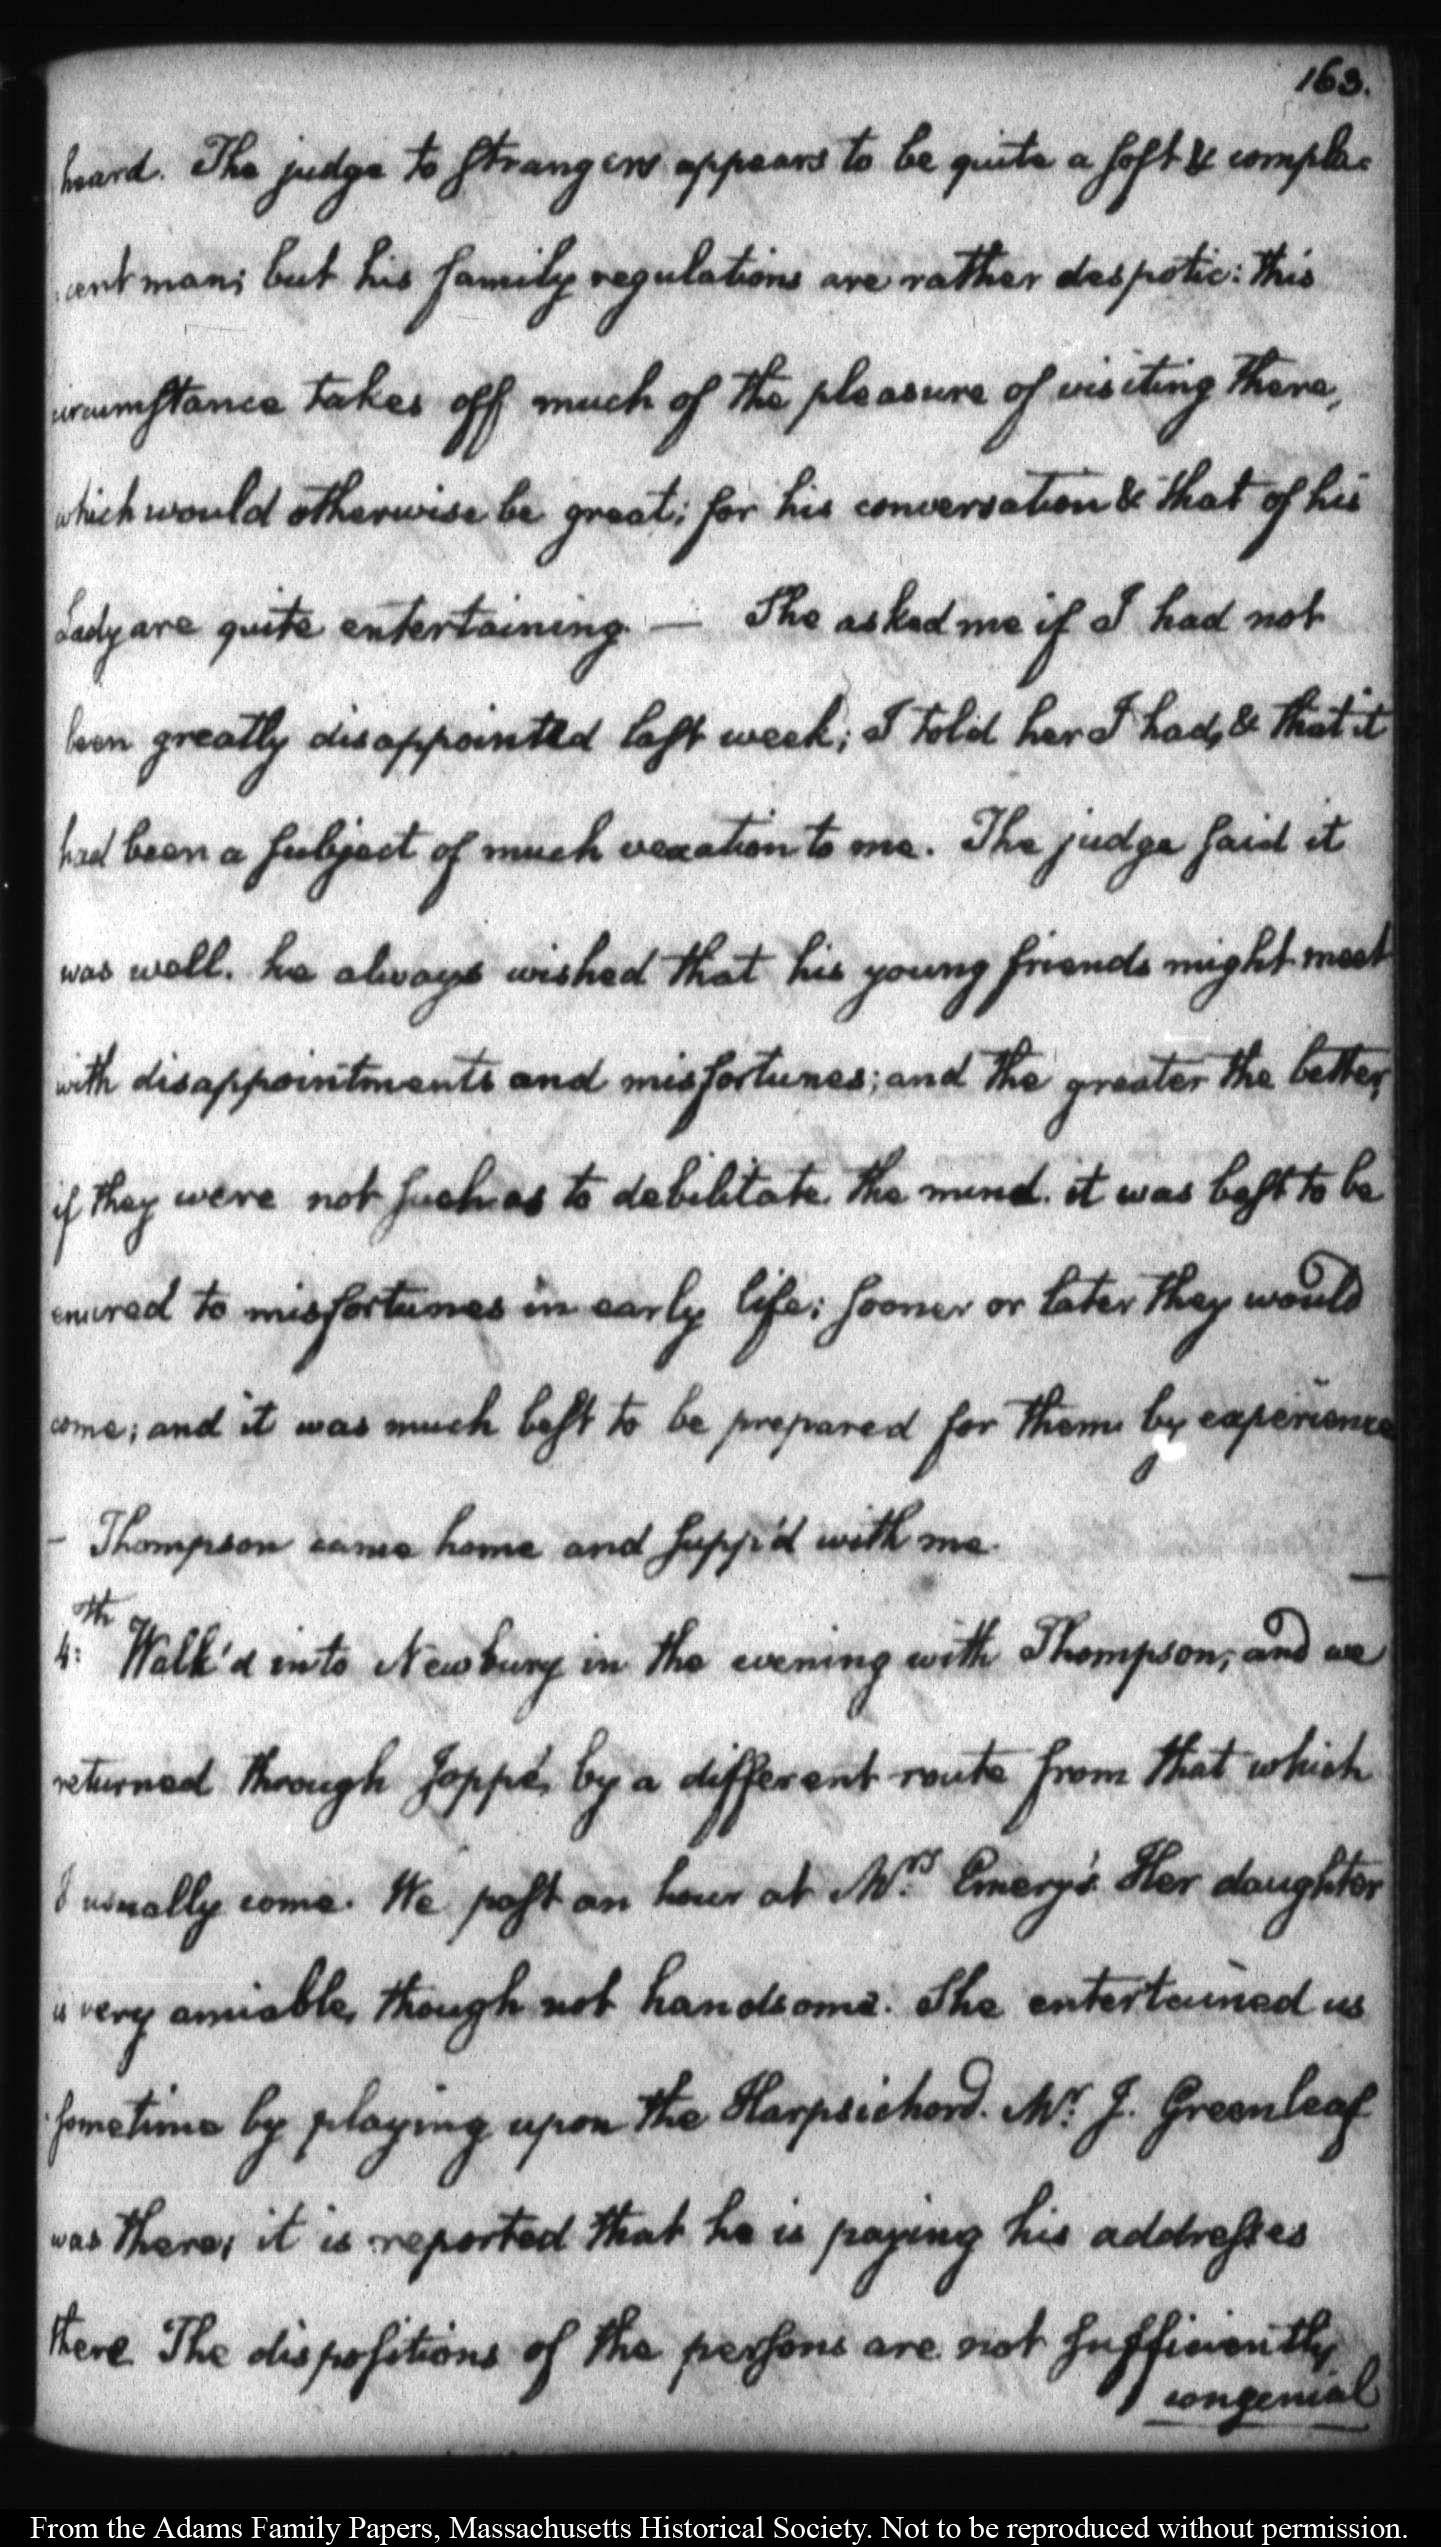 163.
heard. The judge to strangers appears to be quite a soft & compla-
cent man; but his family regulations are rather despotic: this
circumstance takes off much of the pleasure of visiting there,
which would otherwise be great; for his conversation & that of his
Lady are quite entertaining. — She asked me if I had not
been greatly disappointed last week; I told her I had, & that it
had been a subject of much vexation to me. The judge said it
was well. he always wished that his young friends might meet
with disappointments and misfortunes; and the greater the better,
if they were not such as to debilitate the mind. it was best to be
enured to misfortunes in early life; sooner or later they would
come; and it was much best to be prepared for them by experience
— Thompson came home and supp'd with me. —
4:th Walk'd into Newbury in the evening with Thompson, and we
returned through Joppé, by a different route from that which
I usually come. We past an hour at Mrs. Emery's. Her daughter
is very amiable, though not handsome. She entertained us
sometime by playing upon the Harpsichord. Mr. J. Greenleaf
was there; it is reported that he is paying his addresses
there. The dispositions of the persons are not sufficiently
congenial
From the Adams Family Papers, Massachusetts Historical Society. Not to be reproduced without permission.